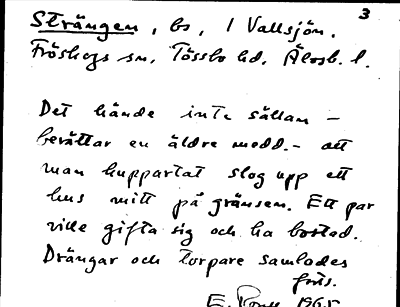 3
Strängen, bs, i Vallsjön.
Fröskogs sn. Tössbo hd. Älvsb. l.
Det hände inte sällan –
berättar en äldre medd. – att
man huppartat slog upp ett
hus mitt på gränsen. Ett par
ville gifta sig och ha bostad.
Drängar och torpare samlades
1965